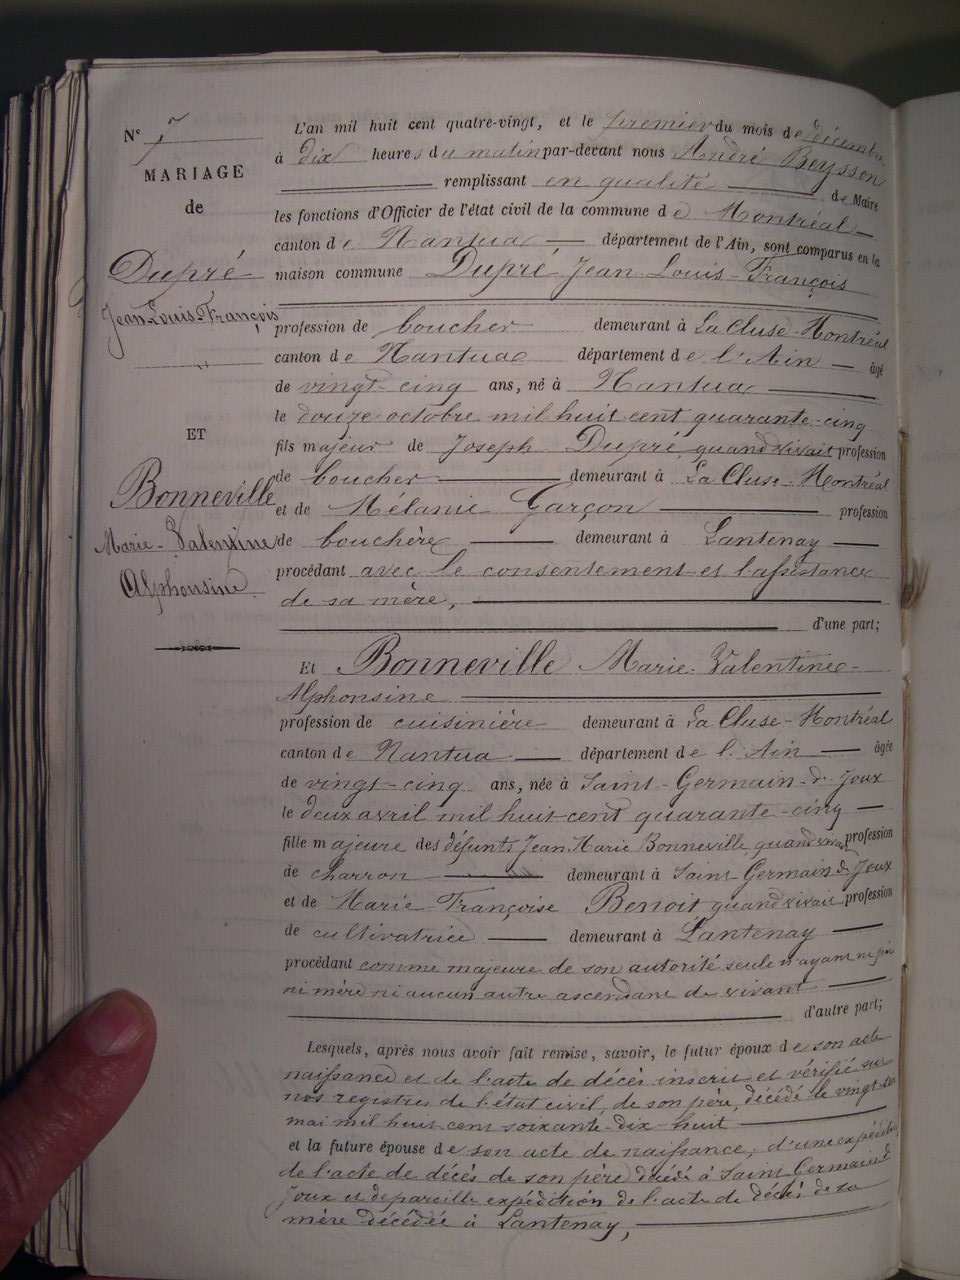 N° 7
MARIAGE
de
Dupré
Jean-Louis-François
ET
Bonneville
Marie-Valentine
Alphonsine
L'an mil huit cent quatre-vingt, et le premier du mois de décembre
à dix heures du matin par-devant nous André Beysson
remplissant en qualité de Maire
les fonctions d'Officier de l'état civil de la commune de Montréal
canton de Nantua département de l'Ain, sont comparus en la
maison commune Dupré Jean-Louis-François
profession de boucher demeurant à La Cluse-Montréal
canton de Nantua département de l'Ain âgé
de vingt-cinq ans, né à Nantua
le douze octobre mil huit cent quarante-cinq
fils majeur de Joseph Dupré quand vivait profession
de boucher demeurant à La Cluse-Montréal
et de Mélanie Garçon profession
de bouchère demeurant à Lantenay
procédant avec le consentement et l'assistance
de sa mère,
d'une part;
Et Bonneville Marie-Valentine-
Alphonsine
profession de cuisinière demeurant à La Cluse-Montréal
canton de Nantua département de l'Ain âgée
de vingt-cinq ans, née à Saint-Germain-d-Joux
le deux avril mil huit-cent quarante-cinq
fille majeure des défunts Jean Marie Bonneville quand vivait profession
de charron demeurant à Saint-Germain d Joux
et de Marie-Françoise Benoit quand vivait profession
de cultivatrice demeurant à Lantenay
procédant comme majeure de son autorité seule n'ayant ni père
ni mère ni aucun autre ascendant de vivant
d'autre part;
Lesquels, après nous avoir fait remise, savoir, le futur époux de son acte
naissance et de l'acte de décès inscrit et vérifié sur
nos registres de l'état civil, de son père, décédé le vingt
mai mil huit cent soixante-dix-huit
et la future épouse de son acte de naissance, d'une expédition
de l'acte de décès de son père décédé à Saint Germain d
Joux et de pareille expédition de l'acte de décès de sa
mère décédée à Lantenay,